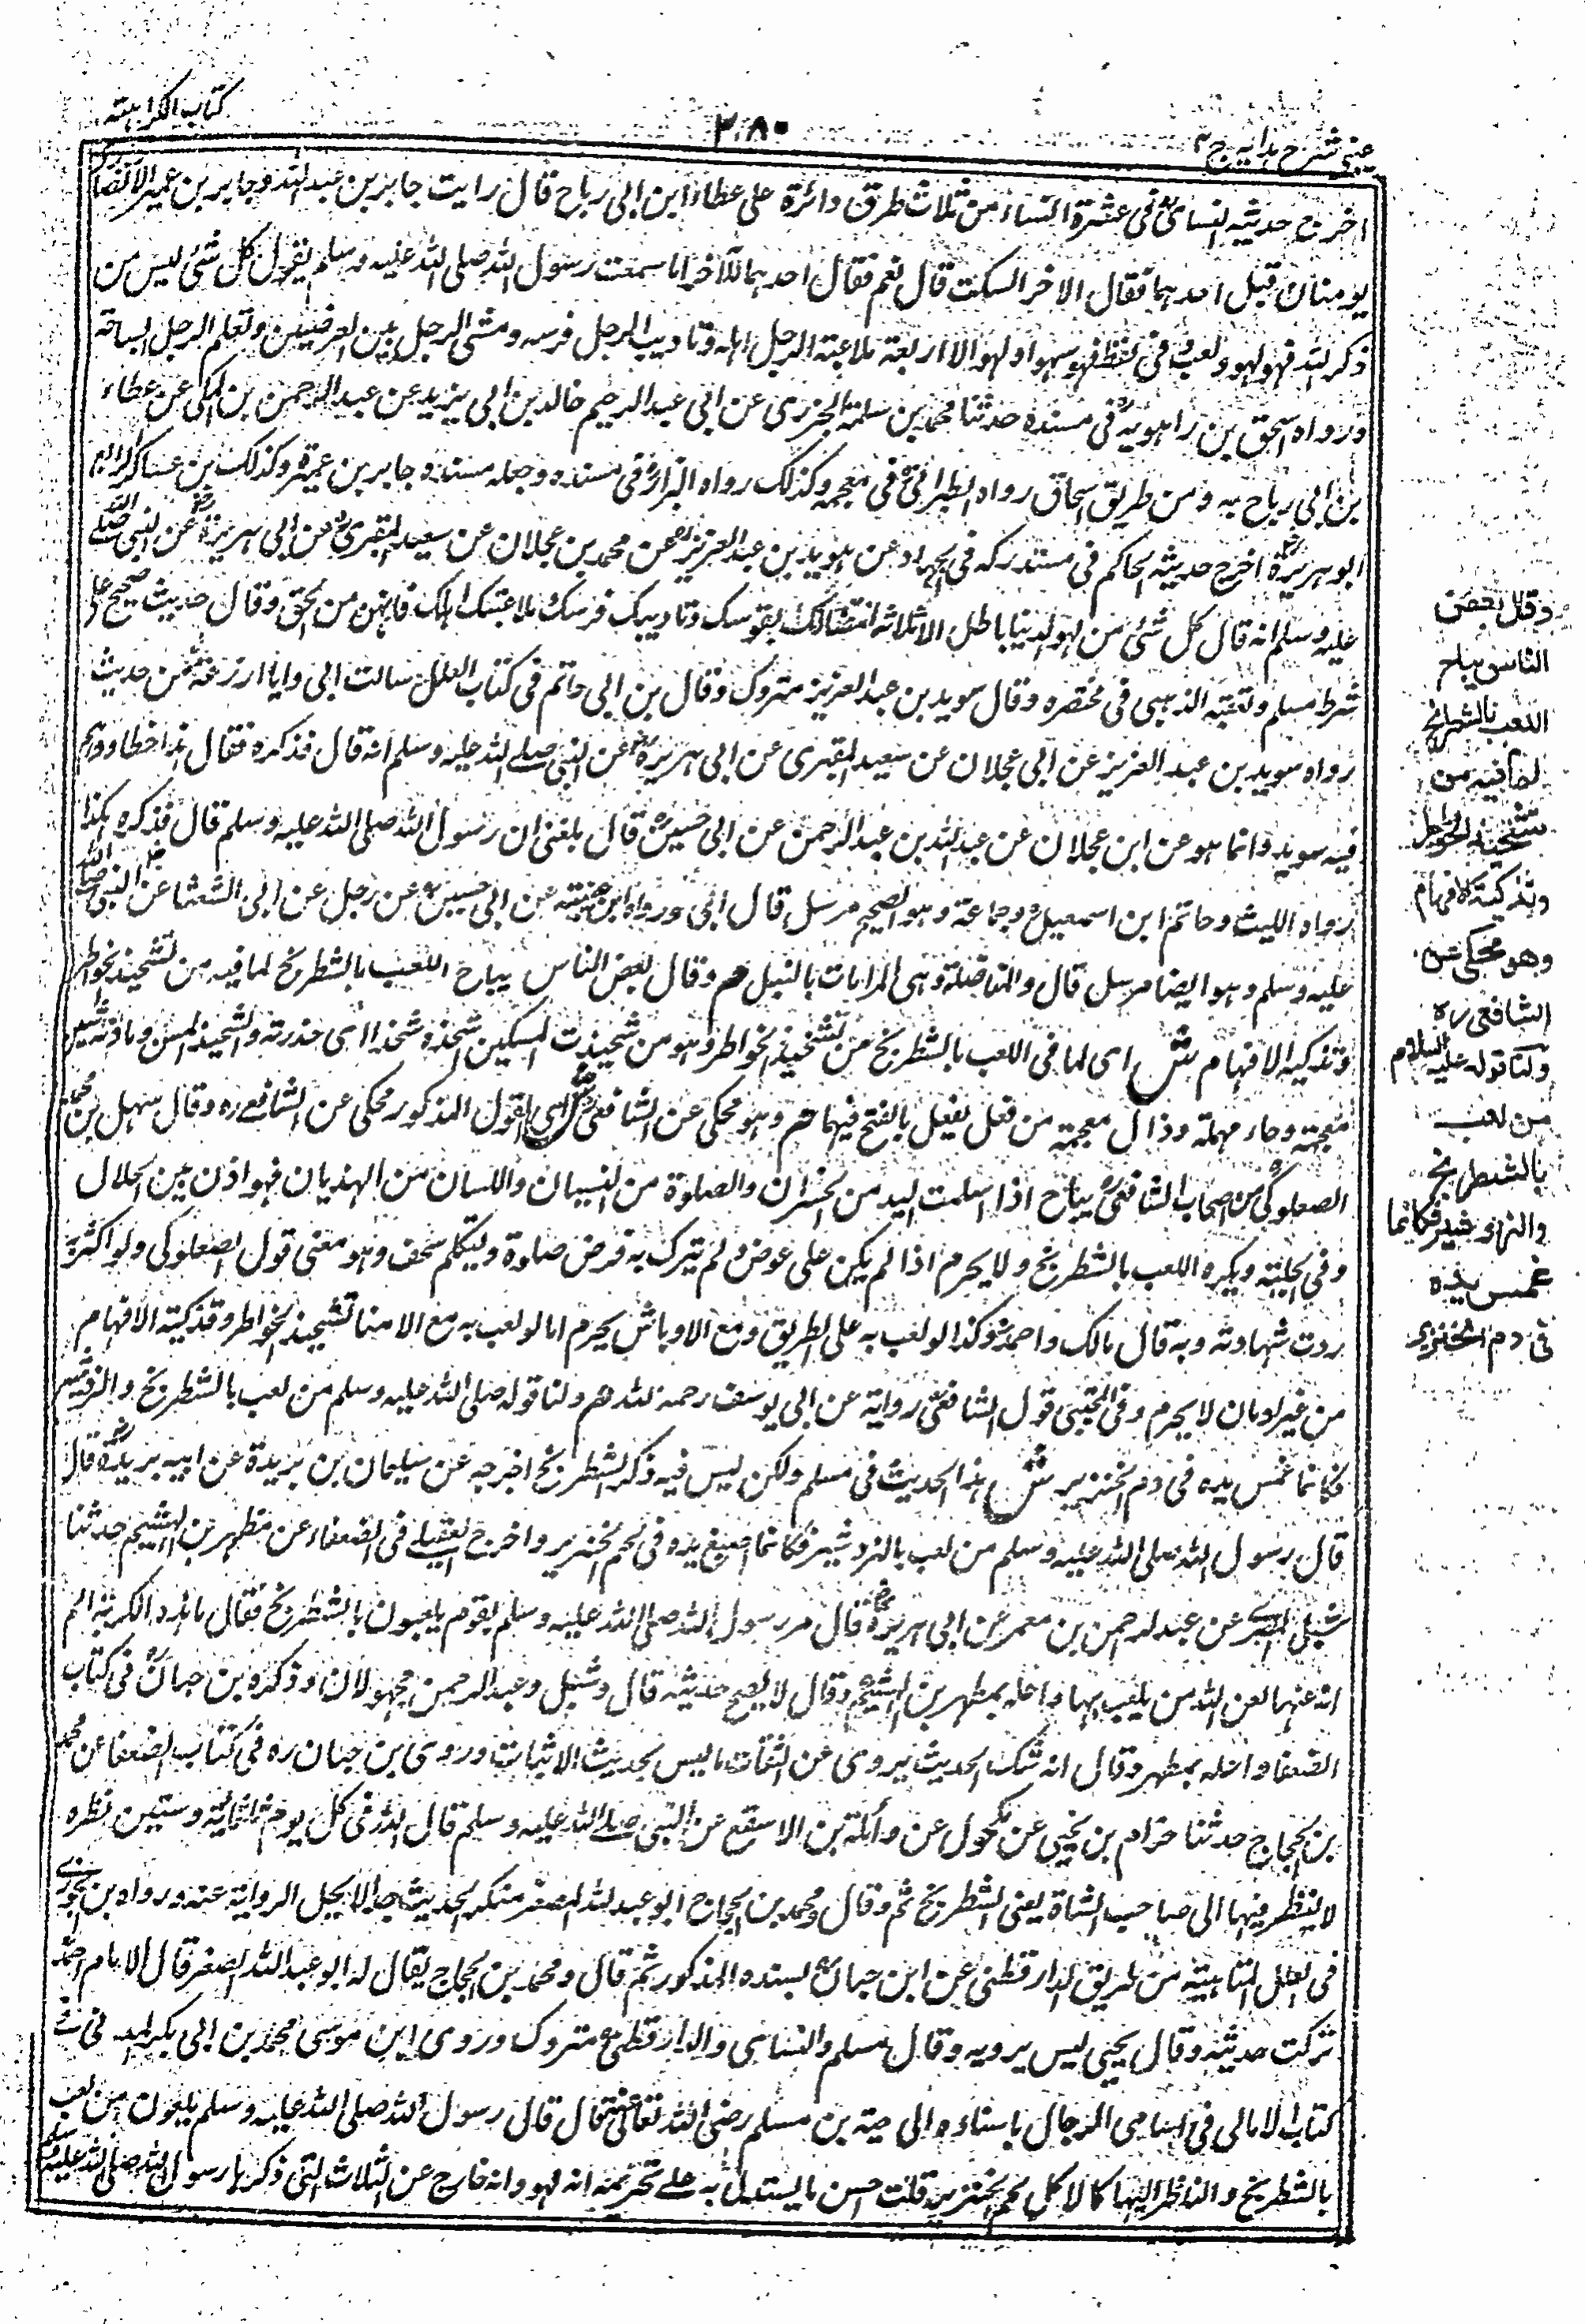 عینی شرح ہدایہ ج ۴
۲۸۰
کتاب الکراہیتہ
اخرج حدیثہ النسائی فی عشرة النساء من ثلاث طرق دائرة علی عطاء ابن ابی رباح قال رایت جابر بن عبد اللہ وجابر بن عمیر الانصار
یومنان قبل احدہما فقال الاخر السکت قال نعم فقال احدہما للاخر اما سمعت رسول اللہ صلی اللہ علیہ وسلم یقول کل شئ لیس من
ذکر اللہ فہو لہو ولعب وفی لفظ فہو سہو او لہو الا اربعة ملاعبة الرجل اہلہ وتادیب الرجل فرسہ ومشی الرجل بین الغرضین وتعلم الرجل السباحة
ورواہ اسحق بن راہویہ فی مسندہ حدثنا محمد بن سلمة الجزری عن ابی عبد الرحیم خالد بن ابی یزید عن عبد الرحمن بن المکی عن عطاء
بن ابی رباح بہ ومن طریق اسحاق رواہ الطبرانی فی معجمہ وکذلک رواہ البزار فی مسندہ وجعلہ مسندہ وجابر بن عمیرة وکذلک بن عساکر
ابو ہریرة اخرج حدیثہ الحاکم فی مستدرکہ فی الجہاد عن سوید بن عبد العزیز عن محمد بن عجلان عن سعید المقبری عن ابی ہریرة عن النبی صلی اللہ
علیہ وسلم انہ قال کل شئ من لہو الدنیا باطل الا ثلاثة انتضالک بقوسک وتادیبک فرسک وملاعبتک اہلک فانہن من الحق وقال حدیث صحیح علی
شرط مسلم وتعقبہ الذہبی فی مختصرہ وقال سوید بن عبد العزیز متروک وقال بن ابی حاتم فی کتاب العلل سالت ابی وابا زرعة عن حدیث
رواہ سوید بن عبد العزیز عن ابی عجلان عن سعید المقبری عن ابی ہریرة عن النبی صلے اللہ علیہ وسلم انہ قال فذکرہ فقال ہذا خطا ووہم
فیہ سوید وانما ہو عن ابن عجلان عن عبد اللہ بن عبد الرحمن عن ابی حسین قال بلغنی ان رسول اللہ صلی اللہ علیہ وسلم قال فذکرہ ہکذا
رواہ اللیث وحاتم ابن اسمعیل وجماعة وہو الصحیح مرسل قال ابی ورواہ ابن عیینة عن ابی حسین عن رجل عن ابی الشعثا عن النبی صلی اللہ
علیہ وسلم وہو ایضا مرسل قال والمناضلة وہی المرامات بالنبل ہم وقال بعض الناس یباح اللعب بالشطرنج لما فیہ من تشحیذ الخواطر
وتذکیہ الافہام ش ای لما فی اللعب بالشطرنج من تشحیذ الخواطر وہو من شحذت السکین شحذہ شحذا ای حددتہ والشحیذ المسن ومادتہ شین
معجمة وحاء مہملة وذال معجمة من فعل یفعل بالفتح فیہما ہم وہو محکی عن الشافعی ش ای القول المذکور محکی عن الشافعے رہ وقال سہیل بن محمد
الصعلوکی من اصحاب الشافعی یباح اذا سلمت الید من الخسران والصلوة من النسیان واللسان من الہذیان فہو اذن بین الحلال
وفی الحلیة ویکرہ اللعب بالشطرنج ولا یحرم اذا لم یکن علی عوض ولم یترک بہ فرض صلوة ولیتکلم سخف وہو معنی قول الصعلوکی ولو اکثر
ردت شہادتہ وبہ قال مالک واحمد وکذا لو لعب بہ علی الطریق ومع الاوباش یحرم اما لو لعب بہ مع الامنا تشحیذ الخواطر وتذکیة الافہام
من غیر ادمان لا یحرم وفی المجتبی قول الشافعی روایة عن ابی یوسف رحمہ اللہ ہم ولنا قولہ صلی اللہ علیہ وسلم من لعب بالشطرنج والنردشیر
فکانما غمس یدہ فی دم الخنزیر ش ہذا الحدیث فی مسلم ولکن لیس فیہ ذکر الشطرنج اخرجہ عن سلیمان بن بریدة عن ابیہ بریدة قال
قال رسول اللہ صلی اللہ علیہ وسلم من لعب بالنردشیر فکانما اصبغ یدہ فی لحم الخنزیر واخرج العقیلے فی الضعفاء عن مطہر بن الہیثم حدثنا
شبل المصری عن عبد الرحمن بن معمر عن ابی ہریرة قال مر رسول اللہ صلی اللہ علیہ وسلم بقوم یلعبون بالشطرنج فقال ما ہذہ الکوبة الم
انہ عنہا لعن اللہ من یلعب بہا واعلہ بمطہر بن الہیثم وقال لا یصح حدیثہ قال وشبل وعبد الرحمن مجہولان وذکرہ بن حبان فی کتاب
الضعفا واعلہ بمطہر وقال انہ منکر الحدیث یروی عن الثقات ما لیس بحدیث الاثبات وروی بن حبان رہ فی کتاب الضعفا عن محمد
بن الحجاج حدثنا حزام بن یحیی عن مکحول عن واثلة بن الاسقع عن النبی صلے اللہ علیہ وسلم قال للہ فی کل یوم ثلثمائة وستین نظرہ
لا ینظر فیہا الی صاحب الشاة یعنی الشطرنج ثم وقال ومحمد بن الحجاج ابو عبد اللہ المصغر منکر الحدیث جدا لا یحل الروایة عنہ ورواہ بن الجوزے
فی العلل المتناہیة من طریق الدارقطنی عن ابن حبان بسندہ المذکور ثم قال ومحمد بن الحجاج یقال لہ ابو عبد اللہ المصغر قال الامام احمد
ترکت حدیثہ وقال یحیی لیس یرویہ وقال مسلم والنسائی والدارقطنی متروک وروی ابن موسی محمد بن ابی بکر المدینی فی
کتاب الامالی فی اسامی الرجال باسنادہ الی حبة بن مسلم رضی اللہ تعالی عنہ قال قال رسول اللہ صلی اللہ علیہ وسلم ملعون من لعب
بالشطرنج والناظر الیہا کالاکل لحم الخنزیر قلت احسن ما یستدل بہ علے تحریمہ انہ لہو وانہ خارج عن الثلاث التی ذکرہا رسول اللہ صلی اللہ علیہ وسلم
وقال بعض
الناس یباح
اللعب بالشطرنج
لما فیہ من
تشحیذ الخواطر
وتذکیة الافہام
وهو محکی عن
الشافعی رہ
ولنا قولہ علیہ السلام
من لعب
بالشطرنج
والنرد شیر فکانما
غمس یدہ
فی دم الخنزیر